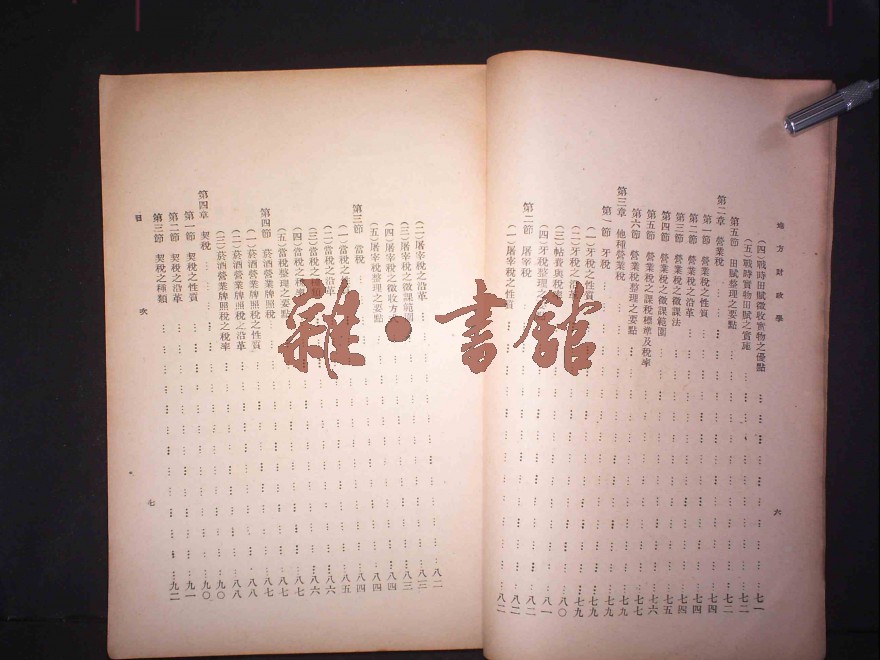 地方財政學
(四)戰時田賦徵收實物之優點 … 七一
(五)戰時實物田賦之實施 … 七二
第五節 田賦整理之要點 … 七二
第二章 營業稅 … 七四
第一節 營業稅之性質 … 七四
第二節 營業稅之沿革 … 七四
第三節 營業稅之徵課法 … 七四
第四節 營業稅之徵課範圍 … 七五
第五節 營業稅之課稅標準及稅率 … 七六
第六節 營業稅整理之要點 … 七七
第三章 他種營業稅 … 七九
第一節 牙稅 … 七九
(一)牙稅之性質 … 七九
(二)牙稅之沿革 … 七九
(三)帖費與稅 … 八〇
(四)牙稅整理之 … 八一
第二節 屠宰稅 … 八二
(一)屠宰稅之性質 … 八二
六
(二)屠宰稅之沿革 … 八二
(三)屠宰稅之徵課範圍 … 八三
(四)屠宰稅之徵收方 … 八三
(五)屠宰稅整理之要點 … 八四
第三節 當稅 … 八四
(一)當稅之性質 … 八五
(二)當稅之沿革 … 八六
(三)當稅之種類 … 八六
(四)當稅之稅率 … 八七
(五)當稅整理之要點 … 八七
第四節 菸酒營業牌照稅 … 八七
(一)菸酒營業牌照稅之性質 … 八八
(二)菸酒營業牌照稅之沿革 … 八八
(三)菸酒營業牌照稅之稅率 … 九〇
第四章 契稅 … 九〇
第一節 契稅之性質 … 九一
第二節 契稅之沿革 … 九二
第三節 契稅之種類
目次
七
雜•書館